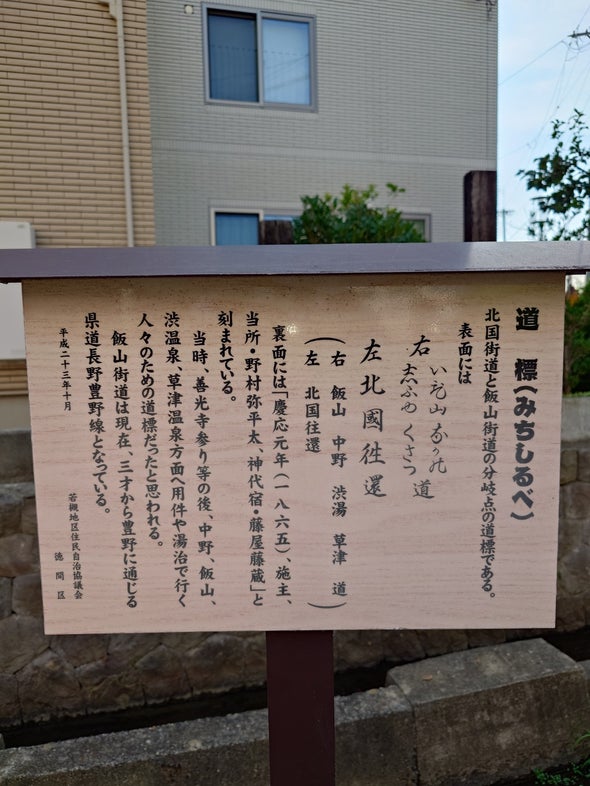 道　標（みちしるべ）
北国街道と飯山街道の分岐点の道標である。
表面には
右 いひ山 なか乃
志ふゆ くさつ 道
左 北國往還
（右　飯山　中野　渋湯　草津　道
左　北国往還）
裏面には「慶応元年（一八六五）、施主、
当所・野村弥平太、神代宿・藤屋藤蔵」と
刻まれている。
当時、善光寺参り等の後、中野、飯山、
渋温泉、草津温泉方面へ用件や湯治で行く
人々のための道標だったと思われる。
飯山街道は現在、三才から豊野に通じる
県道長野豊野線となっている。
平成二十三年十月
若槻地区住民自治協議会
徳間区